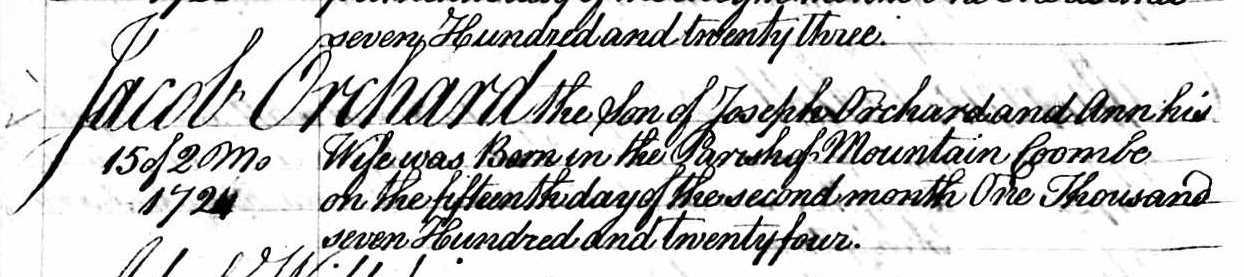 seven Hundred and twenty three.
Jacob Orchard the Son of Joseph Orchard and Ann his
15 of 2 Mo Wife was Born in the Parish of Mountain Coombe
1724 on the fifteenth day of the second month One Thousand
seven Hundred and twenty four.